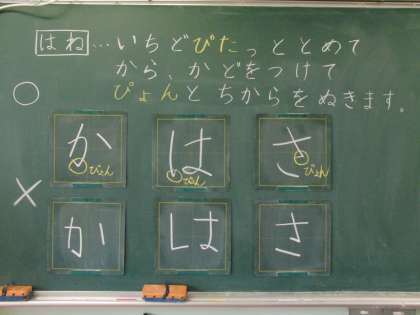 はね…いちどぴたっととめて
から、かどをつけて
ぴょんとちからをぬきます。
○
か は さ
ぴょん ぴょん ぴょん
×
か は さ